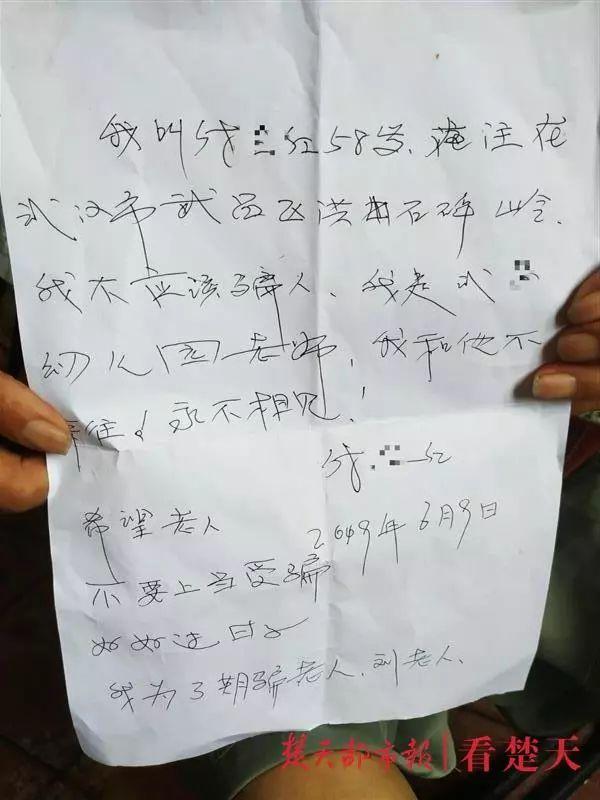 我叫钱红58岁.住在
武汉市武昌区洪山石碑岭.
我不应该骗人、我是武
幼儿园老师,我和他不
往! 永不相见!
钱.红
2049年6月9日
希望老人
不要上当受骗
好好过日子
我为了期骗老人.刘老人.
楚天都市报|看楚天